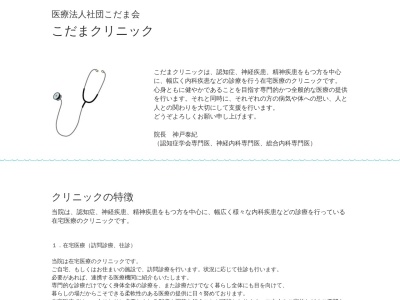 医療法人社団こだま会
こだまクリニック
こだまクリニックは、認知症、神経疾患、精神疾患をもつ方を中心
に、幅広く内科疾患などの診療を行う在宅医療のクリニックです。
心身ともに健やかであることを目指す専門的かつ全般的な医療の提供
を行います。それと同時に、それぞれの方の病気や体への想い、人と
人との関わりを大切にして支援を行います。
どうぞよろしくお願い申し上げます。
院長　神戸泰紀
（認知症学会専門医、神経内科専門医、総合内科専門医）
クリニックの特徴
当院は、認知症、神経疾患、精神疾患をもつ方を中心に、幅広く様々な内科疾患などの診療を行っている
在宅医療のクリニックです。
１．在宅医療（訪問診療、往診）
当院は在宅医療のクリニックです。
ご自宅、もしくはお住まいの施設で、訪問診療を行います。状況に応じて往診も行います。
必要があれば、連携する医療機関に紹介もいたします。
専門的な診療だけでなく身体全体の診療を、また診療だけでなく暮らし全体にも目を向けて、
暮らしの場だからこそできる柔軟性のある医療の提供に日々努めております。